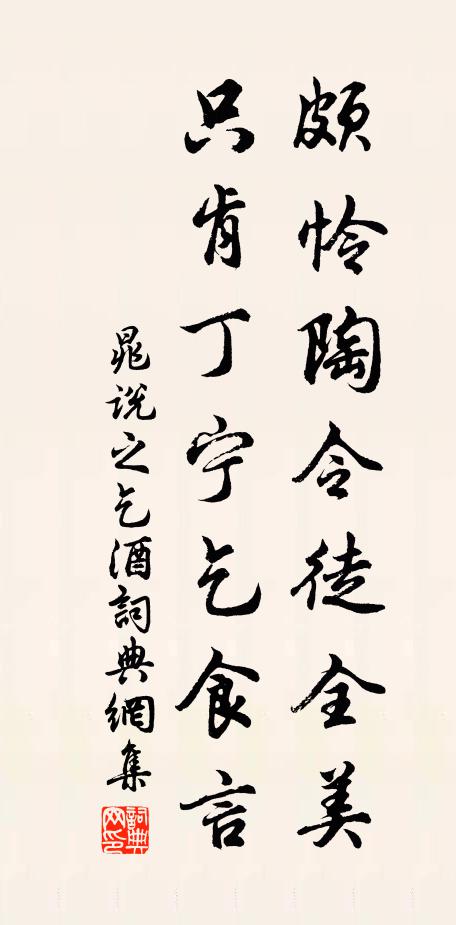 頗怜陶令徒全美
只肯丁宁乞食言
晁说之乞酒詞典網集
詞典网印